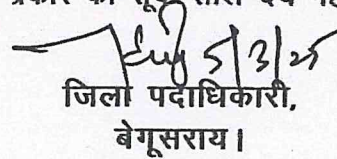 5/3/25
जिला पदाधिकारी,
बेगूसराय।